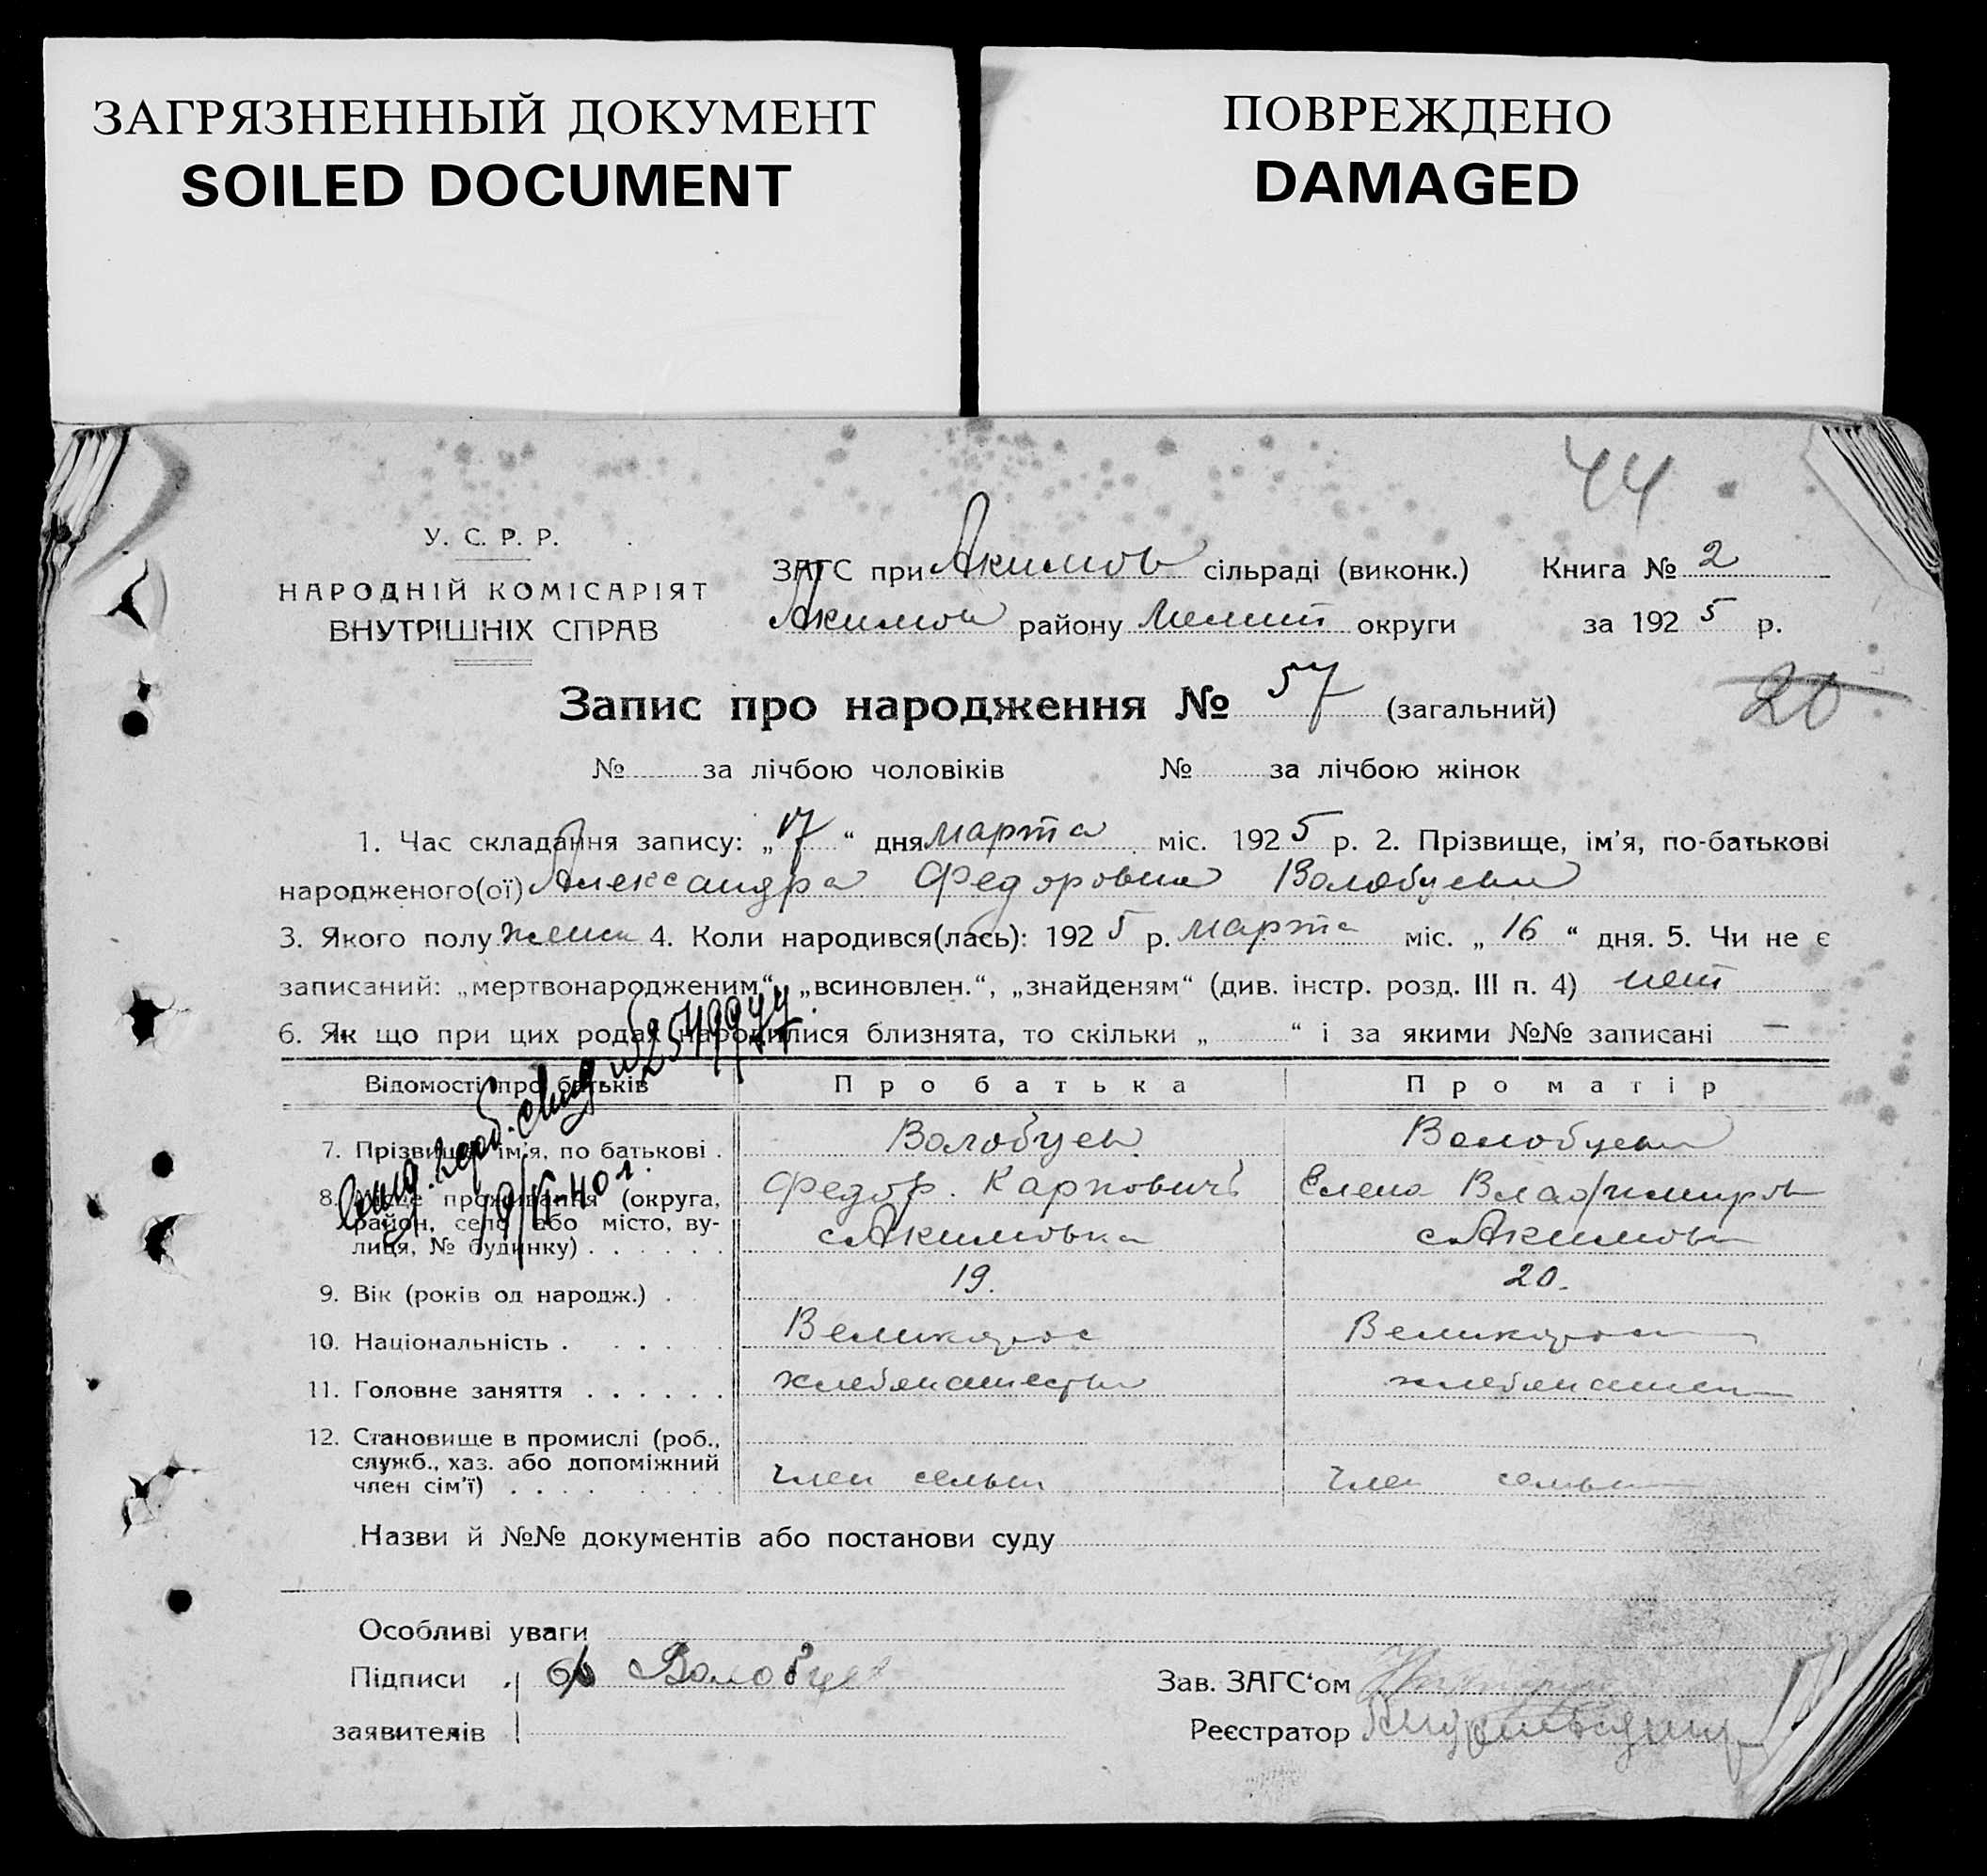 ЗАГРЯЗНЕННЫЙ ДОКУМЕНТ
SOILED DOCUMENT
ПОВРЕЖДЕНО
DAMAGED
44
У. С. Р. Р.
НАРОДНІЙ КОМІСАРІЯТ
ВНУТРІШНІХ СПРАВ
ЗАГС при Акимов сільраді (виконк.) Книга № 2
Акимов району Мелит округи за 1925 р.
Запис про народження № 57 (загальний)
20
№ за лічбою чоловіків № за лічбою жінок
1. Час складання запису: „17“ дня марта міс. 1925 р. 2. Прізвище, ім'я, по-батькові
народженого(ої) Александра Федоровна Волобуева
3. Якого полу женск 4. Коли народився(лась): 1925 р. марта міс. „16“ дня. 5. Чи не є
записаний: „мертвонародженим“, „всиновлен.“, „знайденям“ (див. інстр. розд. III п. 4) нет
6. Як що при цих родах народилися близнята, то скільки „ “ і за якими №№ записані —
Відомості про батьків Про батька Про матір
7. Прізвище, ім'я, по батькові . Волобуев Волобуева
Федор Карпович Елена Владимиров
8. Місце проживання (округа,
район, село або місто, ву-
лиця, № будинку) . . . . . . с Акимовка с Акимовка
9. Вік (років од народж.) . 19. 20.
10. Національність . . . . . Великорос Великорос
11. Головне заняття . . . . . .
12. Становище в промислі (роб.,
служб., хаз. або допоміжний
член сім'ї) . . . . член семьи член семьи
Назви й №№ документів або постанови суду
Особливі уваги
Підписи Волобуев Зав. ЗАГС'ом
заявителів Реєстратор